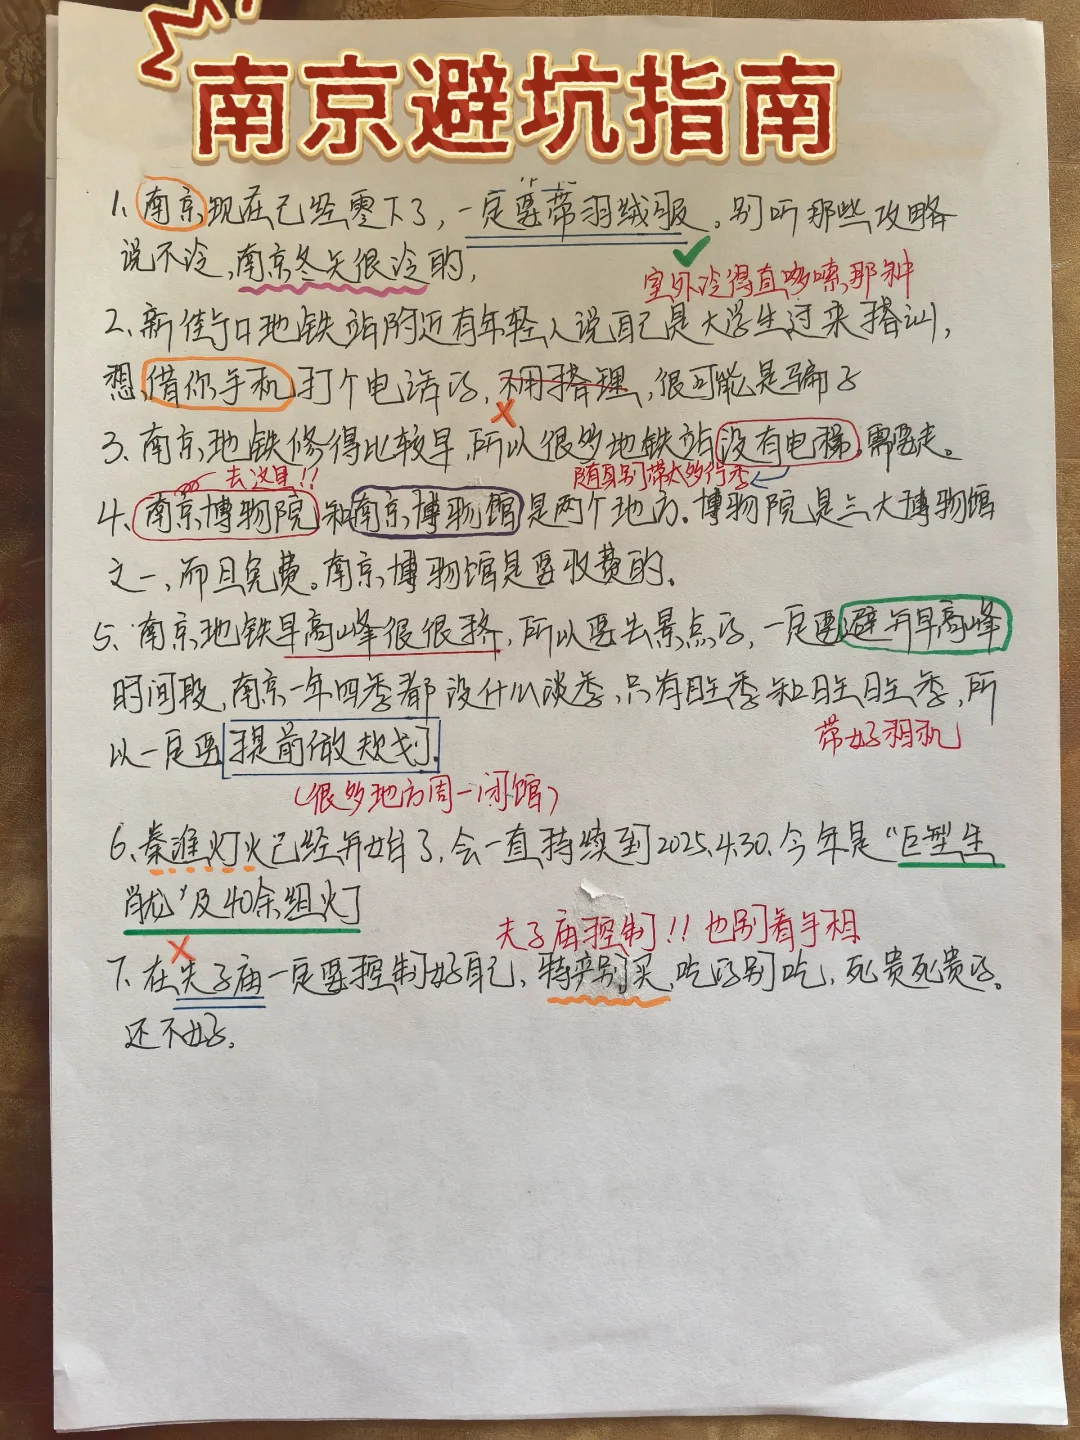 南京避坑指南
1、南京现在已经零下了，一定要带羽绒服。别听那些攻略
说不冷，南京冬天很冷的，
室外冷得直哆嗦那种
2、新街口地铁站附近有年轻人说自己是大学生过来搭讪，
想借你手机打个电话的，不用搭理，很可能是骗子
3、南京地铁修得比较早，所以很多地铁站没有电梯，需要走。
去这里!!
随身别带太多行李
4、南京博物院和南京博物馆是两个地方。博物院是三大博物馆
之一，而且免费。南京博物馆是要收费的。
5、南京地铁早高峰很很挤，所以要去景点的，一定要避开早高峰
时间段，南京一年四季都没什么淡季，只有旺季和旺旺季，所
以一定要提前做规划。
带好相机
（很多地方周一闭馆）
6、秦淮灯火已经开始了，会一直持续到2025.4.30.今年是“巨型生
肖龙”及40余组灯
夫子庙控制!!也别看手相
7、在夫子庙一定要控制好自己，特产别买，吃的别吃，死贵死贵的。
还不好。